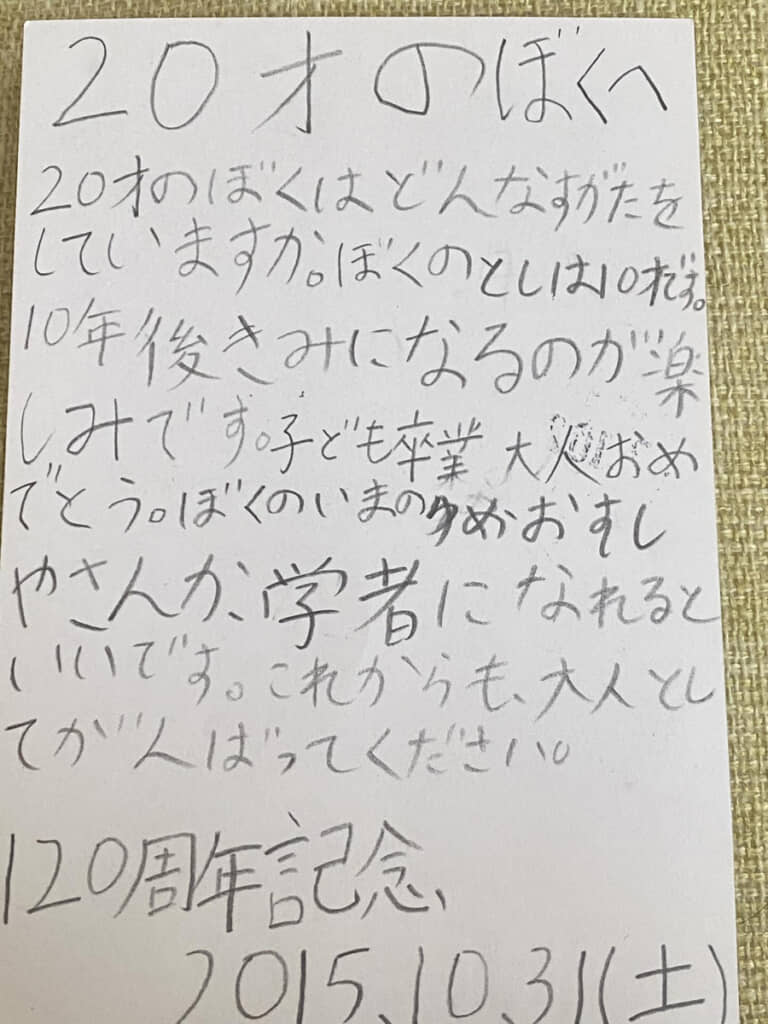 20才のぼくへ
20才のぼくはどんなすがたを
していますか。ぼくのとしは10才です。
10年後きみになるのが楽
しみです。子ども卒業 大人おめ
でとう。ぼくのいまの
おすし
やさんか、学者になれると
いいです。これからも、大人とし
てがんばってください。
120周年記念、
2015.10.31(土)